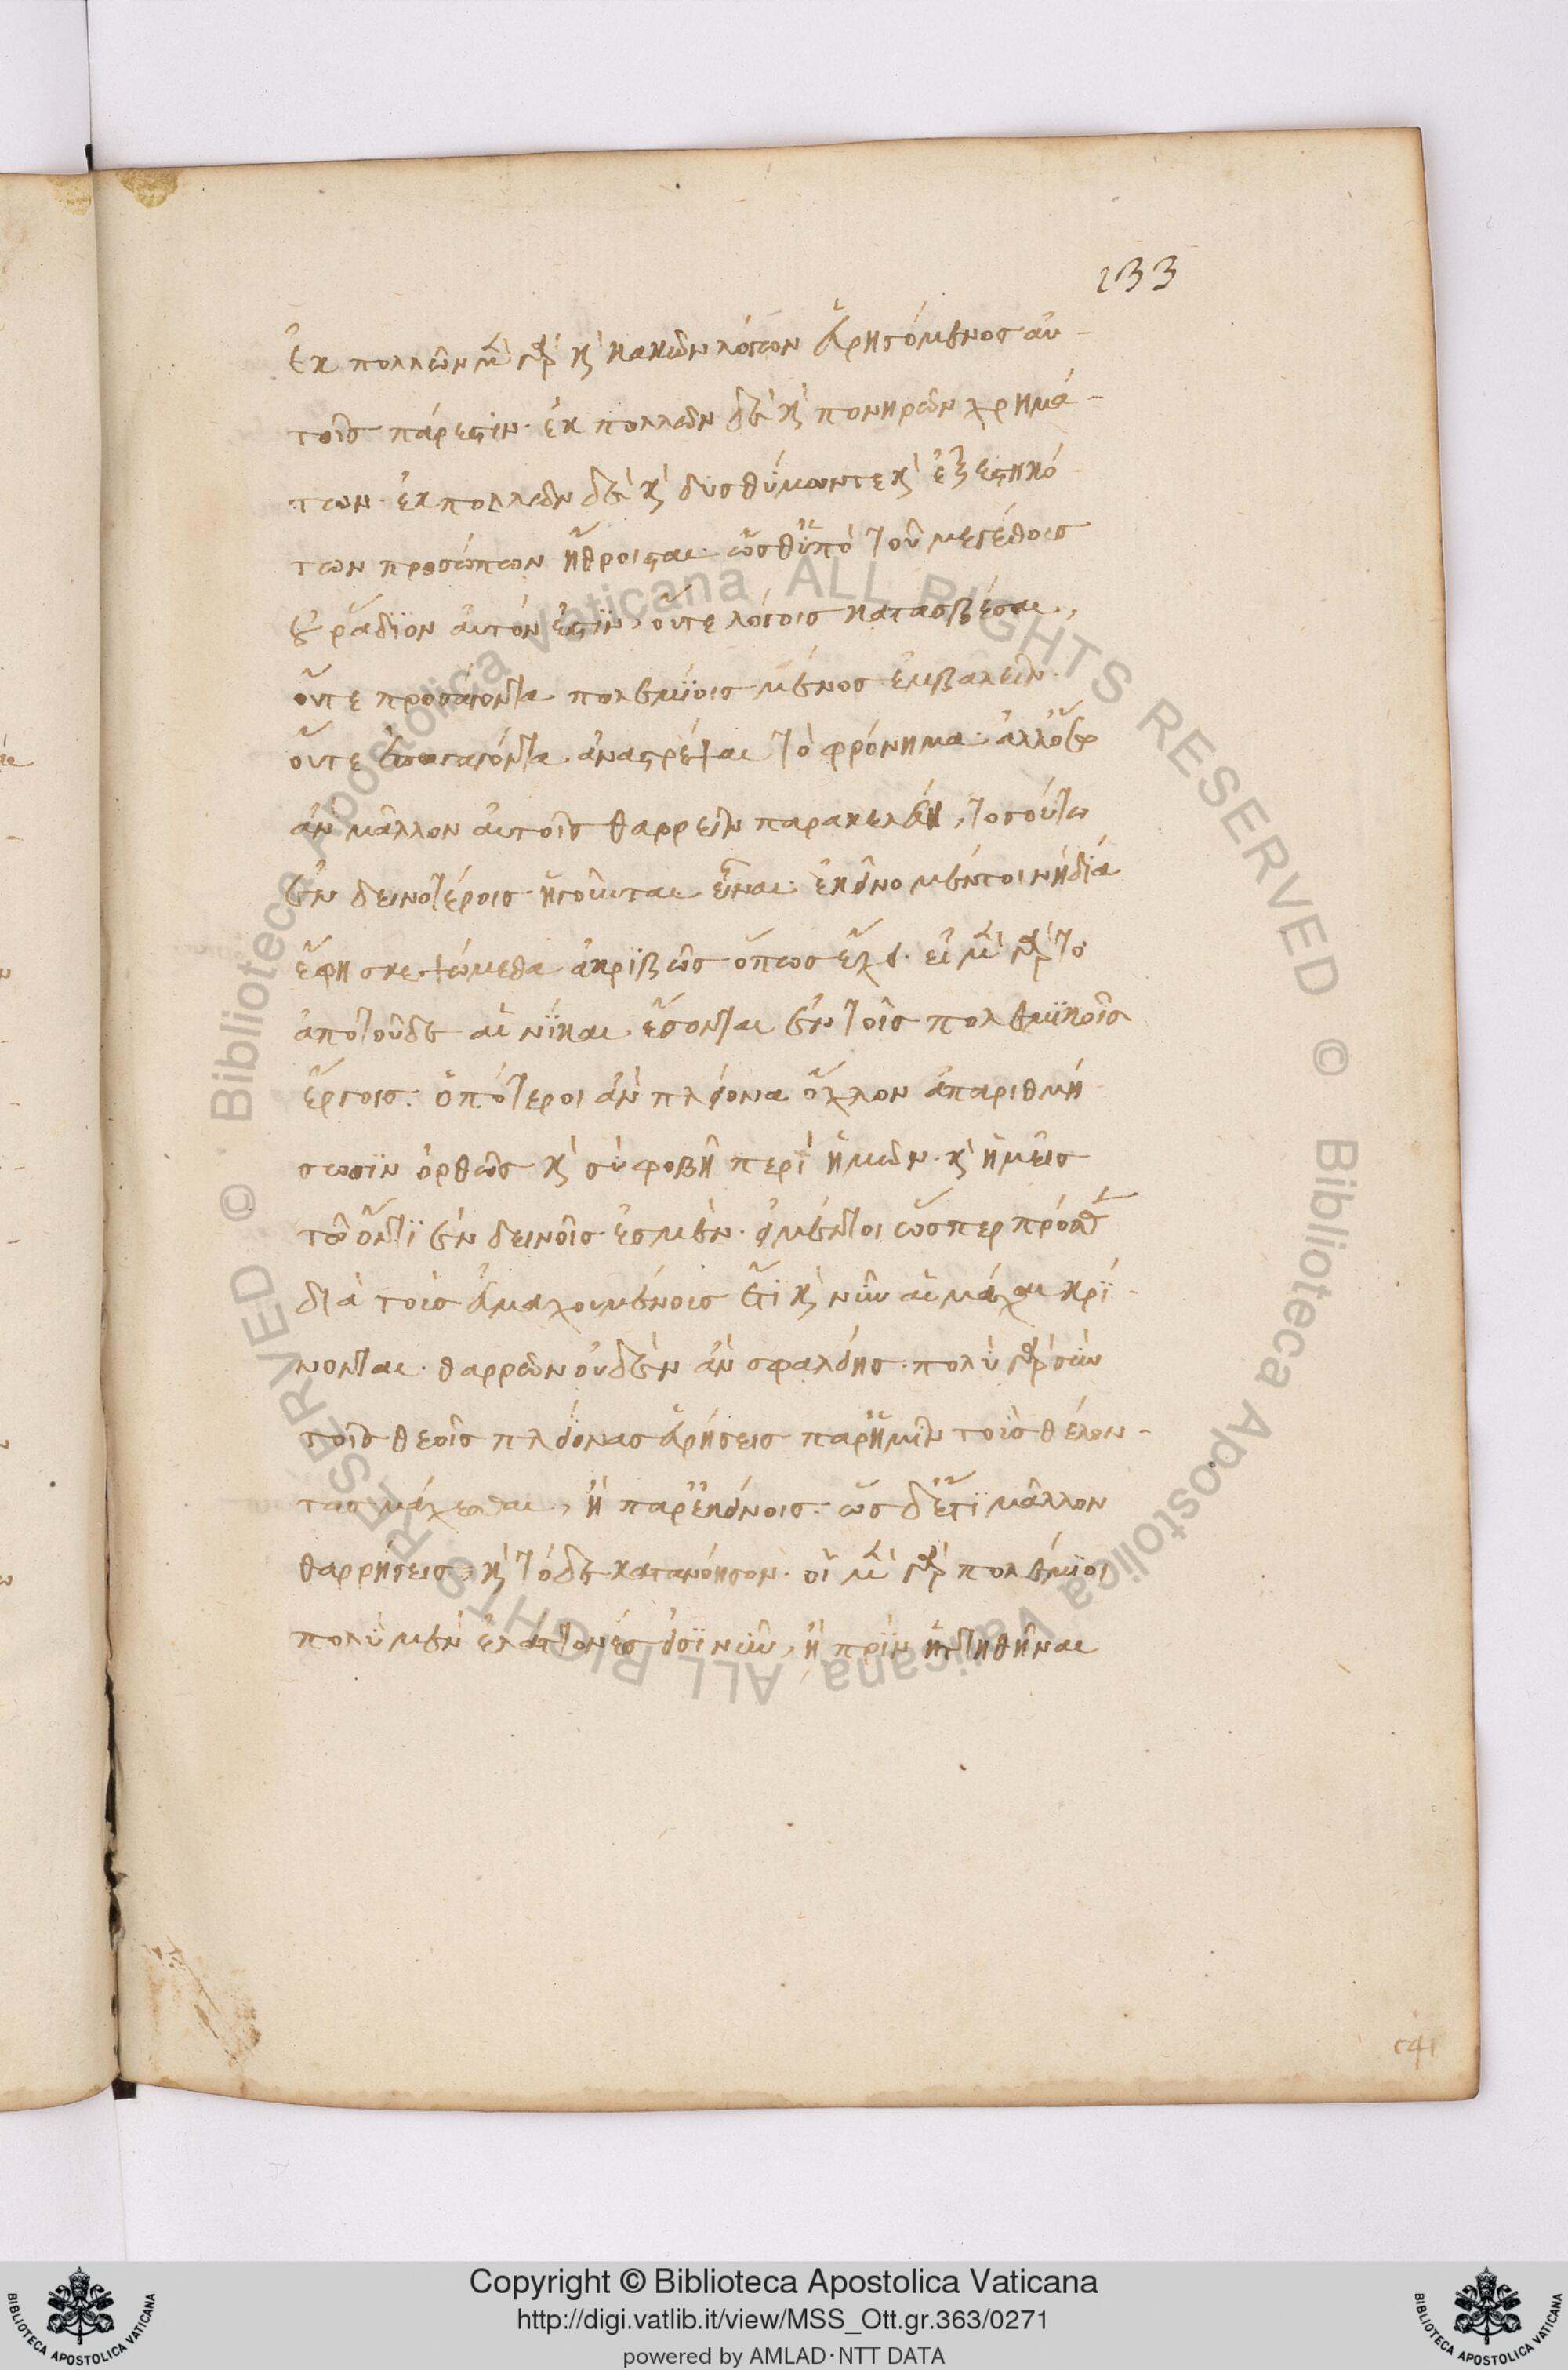 ἐκ πολλῶν μὲν γὰρ καὶ κακῶν λόγων εὑρησόμενος αὐ-
τοῖς πάρεστιν· ἐκ πολλῶν δὲ καὶ πονηρῶν χρημά-
των· ἐκ πολλῶν δὲ καὶ δυσθύμων τε καὶ ἐξεστηκό-
των προσώπων ἤθροισται· ὥσθ' ὑπὸ τοῦ μεγέθους
οὐ ῥάδϊον αὐτόν ἐστϊν, οὔτε λόγοις κατασβέσαι,
οὔτε προσάγοντα πολεμΐοις μένος ἐμβαλεῖν·
οὔτε ἀπαγαγόντα ἀναστρέψαι τὸ φρόνημα· ἀλλ' ὅσω
ἂν μᾶλλον αὐτοῖς θαρρεῖν παρακελεύη, τοσούτω
ἐν δεινοτέροις ἡγοῦνται εἶναι· ἐκεῖνο μέντοι νὴ δία
ἔφη σκεψώμεθα ἀκρϊβῶς ὅπως ἔχει· εἰ μὲν γὰρ τὸ
ἀπὸ τοῦδε αἱ νῖκαι ἔσονται ἐν τοῖς πολεμϊκοῖς
ἔργοις· ὁπότεροι ἂν πλείονα ὄχλον ἀπαριθμή
σωσϊν ὀρθῶς καὶ σὺ φοβῆ περὶ ἡμῶν· καὶ ἡμεῖς
τῶ ὄντϊ ἐν δεινοῖς ἐσμὲν· εἰ μέντοι ὥσπερ πρόσθεν
διὰ τοὺς εὖ μαχουμένους ἔτϊ καὶ νῦν αἱ μάχαι κρΐ-
νονται· θαρρῶν οὐδὲν ἂν σφαλείης· πολὺ γὰρ σὺν
τοῖς θεοῖς πλείονας εὑρήσεις παρ' ἡμῖν τοὺς θέλον-
τας μάχεσθαι, ἢ παρ' ἐκείνοις· ὡς δ' ἔτϊ μᾶλλον
θαρρήσεις, καὶ τόδε κατανόησον· οἱ μὲν γὰρ πολέμϊοι
πολὺ μὲν ἐλάττονές εἰσϊ νῦν, ἢ πρϊν ἡττηθῆναι
133
Copyright © Biblioteca Apostolica Vaticana
http://digi.vatlib.it/view/MSS_Ott.gr.363/0271
powered by AMLAD·NTT DATA